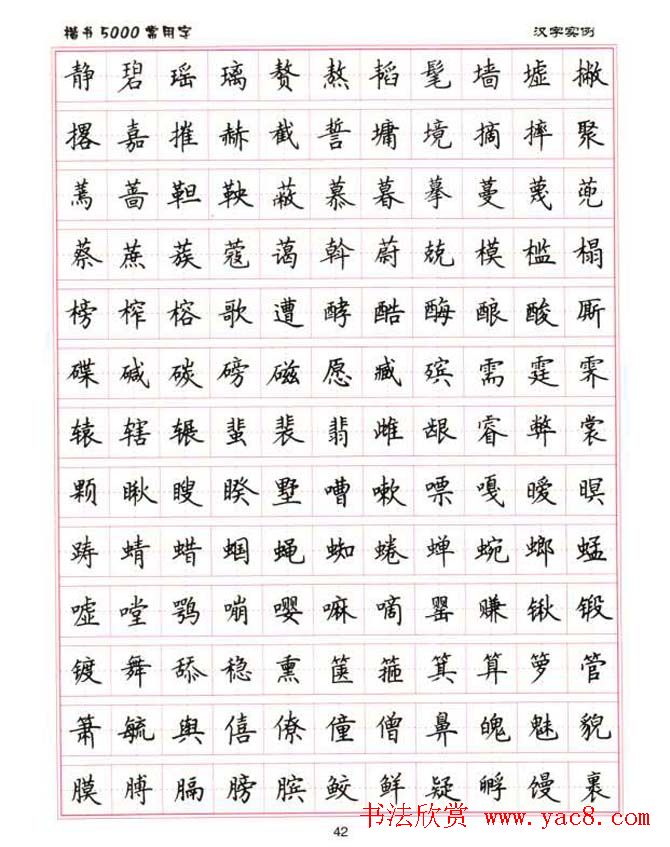 楷书5000常用字 汉字实例
静碧瑶璃赘熬韬髦墙墟撇
撂嘉摧赫截誓墉境摘摔聚
蔫蔷靼鞅蔽慕暮摹蔓蔑蔸
蔡蔗蔟蔻蔼斡蔚兢模槛榻
榜榨榕歌遭酵酷酶酿酸厮
碟碱碳磅磁愿臧殡需霆霁
辕辖辗蜚裴翡雌龈睿弊裳
颗瞅瞍睽墅嘈嗽嘌嘎暧暝
踌蜻蜡蝈蝇蜘蜷蝉蜿螂蜢
嘘嘡鹗嘣嘤嘛嘀罂赚锹锻
镀舞舔稳熏箧箍箕算箩管
箫毓舆僖僚僮僧鼻魄魅貌
膜膊膈膀膑鲛鲜疑孵馒裹
书法欣赏 www.yac8.com
42